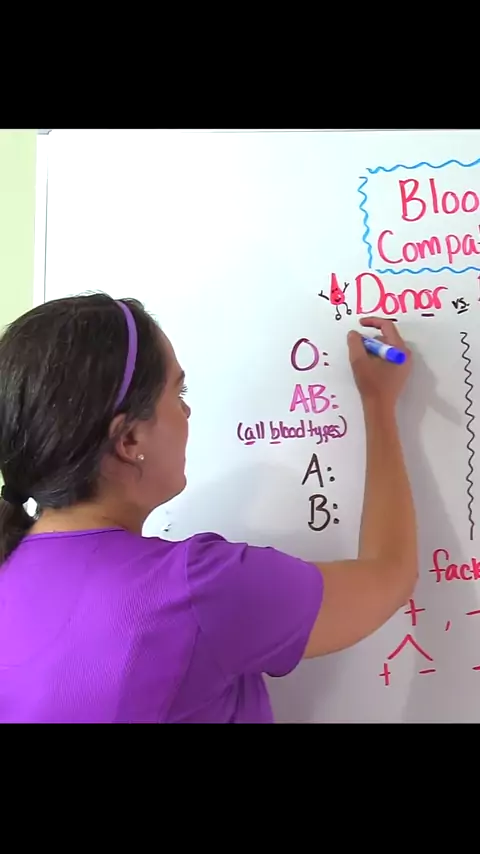 Bloo
Compa
Donor vs.
O:
AB:
(all blood types)
A:
B:
fact
+ , -
+ - -